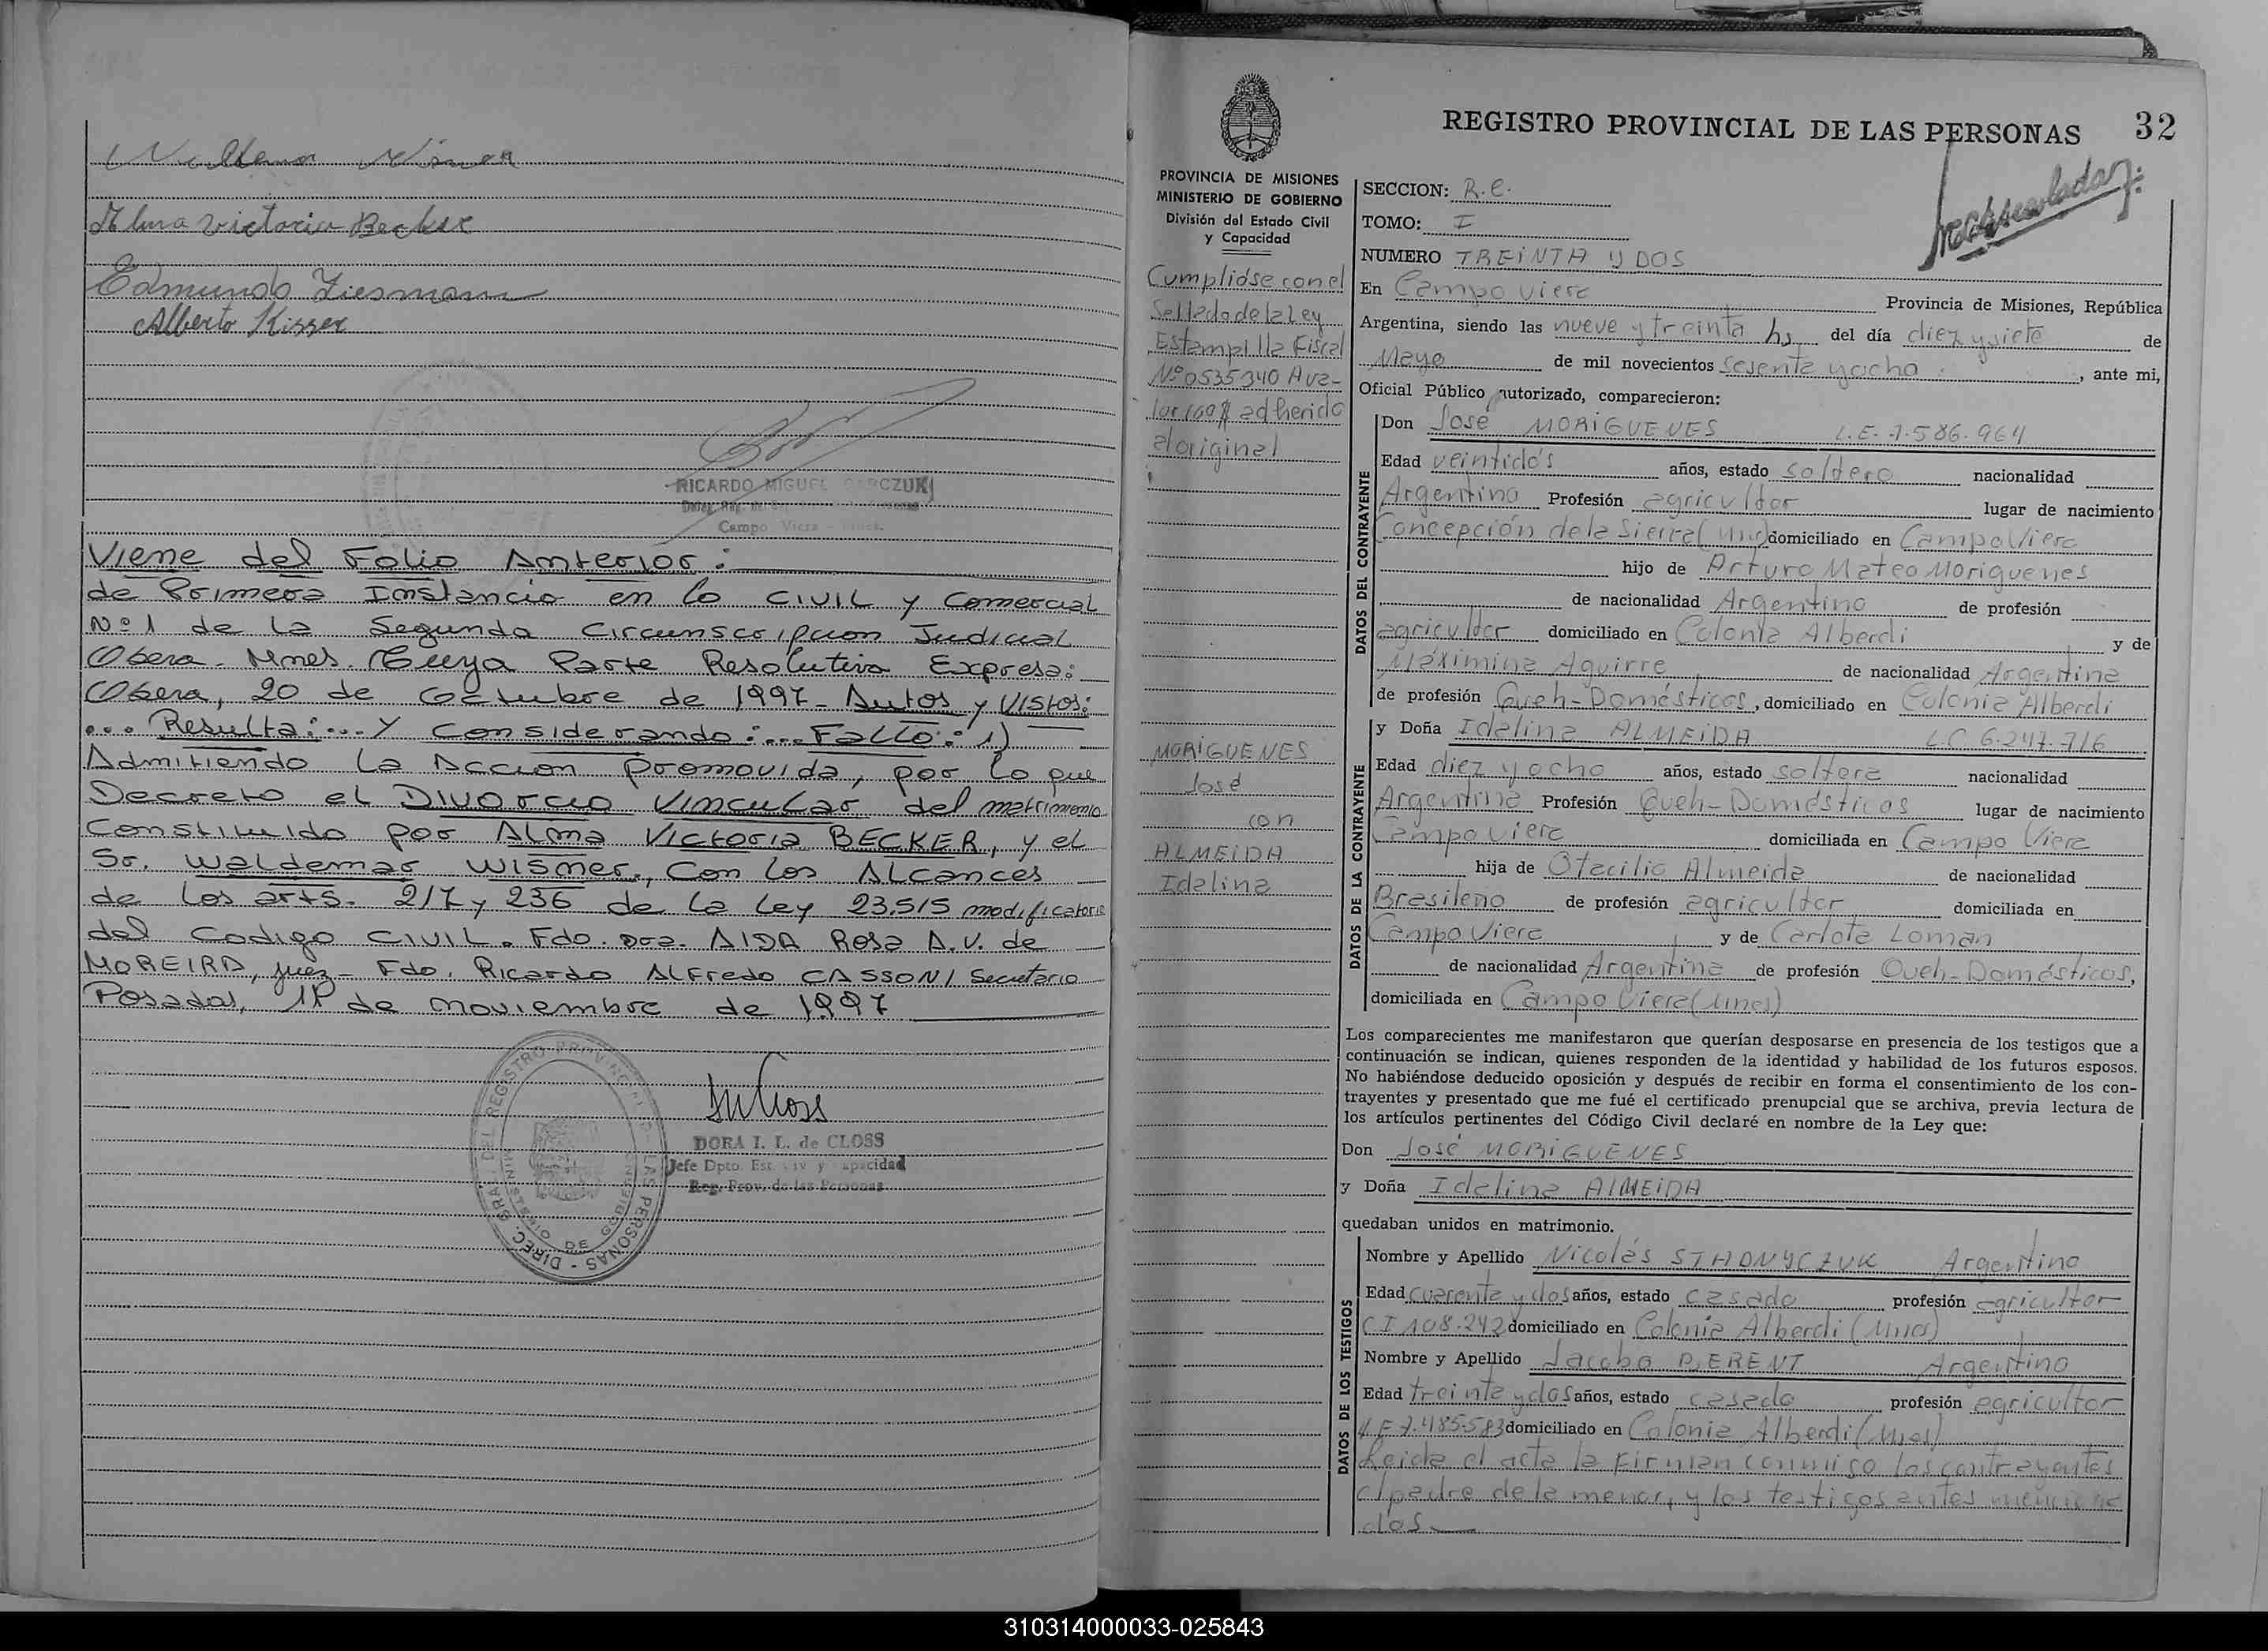 Alma Victoria Becker
Edmundo Ziesmann
Alberto Kisser
RICARDO MIGUEL
Campo Viera
Viene del Folio Anterior:
de Primera Instancia en lo CIVIL y Comercial
Nº 1 de la Segunda Circunscripcion Judicial
Obera. Mnes. Cuya Parte Resolutiva Expresa:
Obera, 20 de Octubre de 1997 - Autos y Vistos:
... Resulta: ... Y Considerando: ... Fallo: 1)
Admitiendo la Accion promovida, por lo que
Decreto el Divorcio Vincular del matrimonio
Constituido por Alma Victoria BECKER, y el
Sr. Waldemar WISMER, Con los Alcances
de los arts. 217 y 236 de la Ley 23.515 modificatoria
del Codigo CIVIL. Fdo. Dra. AIDA Rosa A.V. de
MOREIRA, juez - Fdo. Ricardo ALFredo CASSONI Secretario
Posadas, de noviembre de 1997
DIREC. GRAL. DEL REGISTRO PROVINCIAL DE LAS PERSONAS
MINISTERIO DE GOBIERNO
DORA I. L. de CLOSS
Jefe Dpto. Est. Civ. y Capacidad
Reg. Prov. de las Personas
REGISTRO PROVINCIAL DE LAS PERSONAS
32
PROVINCIA DE MISIONES
MINISTERIO DE GOBIERNO
División del Estado Civil
y Capacidad
Cumplióse con el
Sellado de la Ley
Estampilla Fiscal
Nº 0535340 A va-
lor 100 $ adherido
al original
MORIGUENES
José
con
ALMEIDA
Idelina
SECCION: R.C.
TOMO: I
NUMERO TREINTA Y DOS
En Campo Viera Provincia de Misiones, República
Argentina, siendo las nueve y treinta hs del día diez y siete de
Mayo de mil novecientos sesenta y ocho, ante mi,
Oficial Público autorizado, comparecieron:
DATOS DEL CONTRAYENTE
Don José MORIGUENES L.E. 7.586.964
Edad veintidós años, estado soltero nacionalidad
Argentino Profesión agricultor lugar de nacimiento
Concepción de la Sierra domiciliado en Campo Viera
hijo de Arturo Mateo Moriguenes
de nacionalidad Argentino de profesión
agricultor domiciliado en Colonia Alberdi y de
Máximina Aguirre de nacionalidad Argentina
de profesión Queh-Domésticos, domiciliado en Colonia Alberdi
DATOS DE LA CONTRAYENTE
y Doña Idelina ALMEIDA L.C 6.247.716
Edad diez y ocho años, estado soltera nacionalidad
Argentina Profesión Queh-Domésticos lugar de nacimiento
Campo Viera domiciliada en Campo Viera
hija de Otacilio Almeida de nacionalidad
Brasileño de profesión agricultor domiciliada en
Campo Viera y de Carlota Loman
de nacionalidad Argentina de profesión Queh-Domésticos,
domiciliada en Campo Viera (Mnes)
Los comparecientes me manifestaron que querían desposarse en presencia de los testigos que a
continuación se indican, quienes responden de la identidad y habilidad de los futuros esposos.
No habiéndose deducido oposición y después de recibir en forma el consentimiento de los con-
trayentes y presentado que me fué el certificado prenupcial que se archiva, previa lectura de
los artículos pertinentes del Código Civil declaré en nombre de la Ley que:
Don José MORIGUENES
y Doña Idelina ALMEIDA
quedaban unidos en matrimonio.
DATOS DE LOS TESTIGOS
Nombre y Apellido Nicolás STADNYCZUK Argentino
Edad cuarenta y dos años, estado casado profesión agricultor
C I 108.242 domiciliado en Colonia Alberdi (Mnes)
Nombre y Apellido Jacobo BERENT Argentino
Edad treinta y dos años, estado casado profesión agricultor
L E 7.485.583 domiciliado en Colonia Alberdi (Mnes)
Leida el acta la Firman conmigo los contrayentes
el padre de la menor, y los testigos antes menciona
dos
310314000033-025843